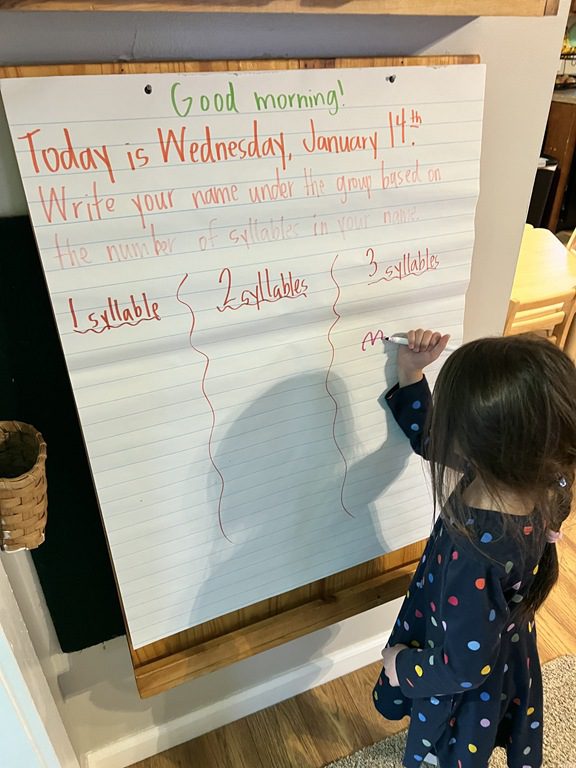 Good morning!
Today is Wednesday, January 14th.
Write your name under the group based on
the number of syllables in your name.
1 syllable 2 syllables 3 syllables
M